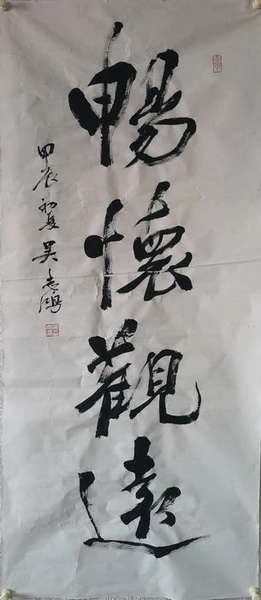 暢懷觀遠
甲辰初夏吴志鴻